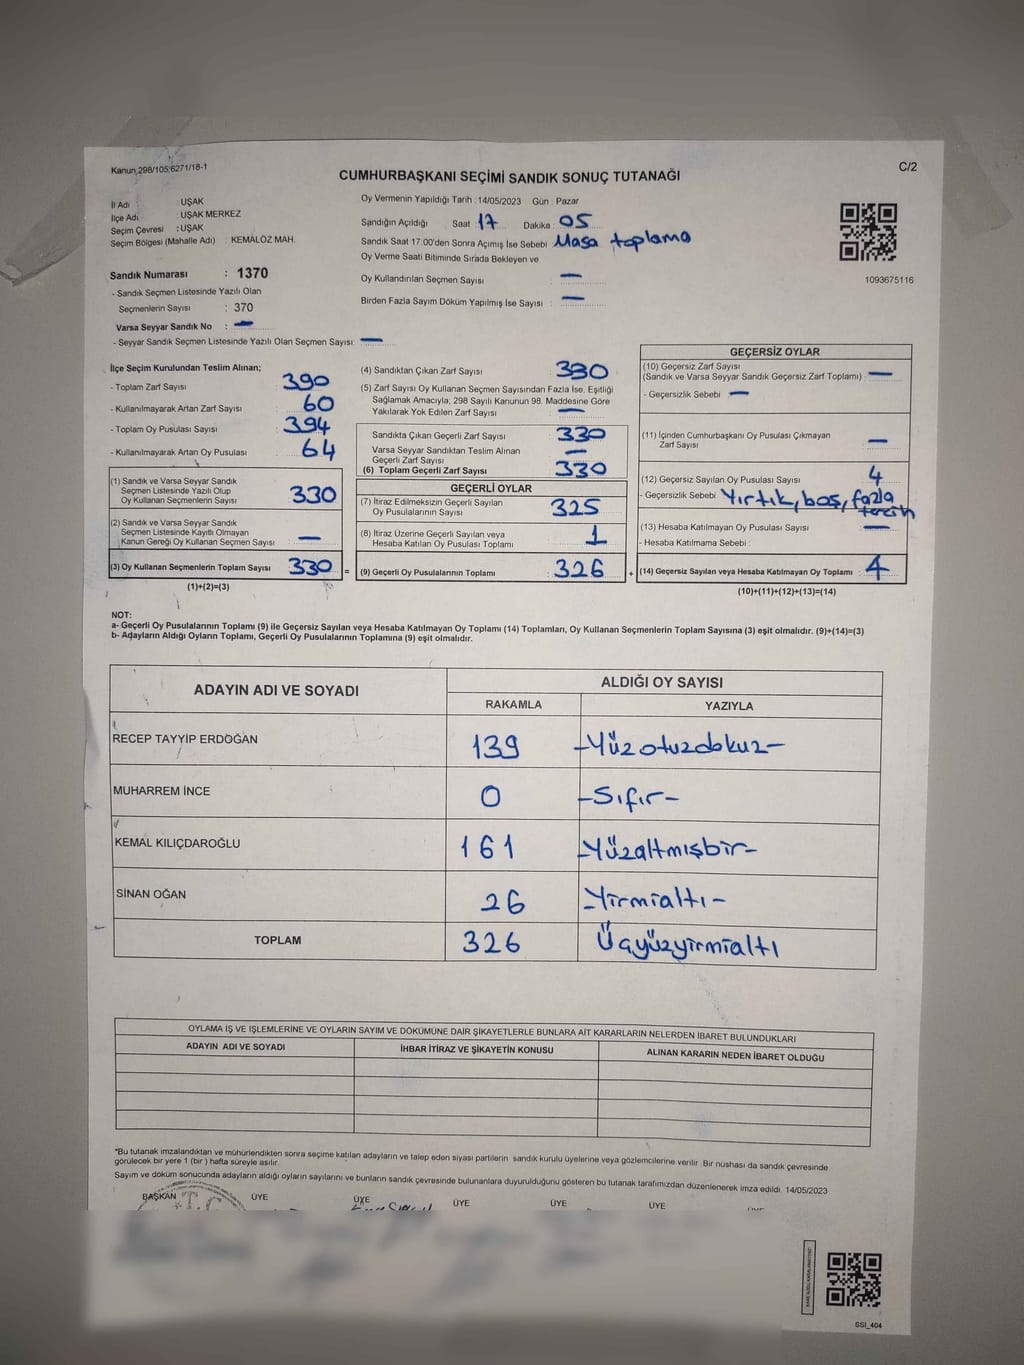 Kanun;298/105;6271/18-1
C/2
CUMHURBAŞKANI SEÇİMİ SANDIK SONUÇ TUTANAĞI
İl Adı : UŞAK
İlçe Adı : UŞAK MERKEZ
Seçim Çevresi : UŞAK
Seçim Bölgesi (Mahalle Adı) : KEMALÖZ MAH.
Sandık Numarası : 1370
- Sandık Seçmen Listesinde Yazılı Olan
Seçmenlerin Sayısı : 370
Varsa Seyyar Sandık No : —
- Seyyar Sandık Seçmen Listesinde Yazılı Olan Seçmen Sayısı: —
Oy Vermenin Yapıldığı Tarih : 14/05/2023 Gün : Pazar
Sandığın Açıldığı Saat 17 Dakika : 05
Sandık Saat 17.00'den Sonra Açımış İse Sebebi Masa toplama
Oy Verme Saati Bitiminde Sırada Bekleyen ve
Oy Kullandırılan Seçmen Sayısı : —
Birden Fazla Sayım Döküm Yapılmış İse Sayısı : —
1093675116
İlçe Seçim Kurulundan Teslim Alınan;
- Toplam Zarf Sayısı 390
- Kullanılmayarak Artan Zarf Sayısı 60
- Toplam Oy Pusulası Sayısı 394
- Kullanılmayarak Artan Oy Pusulası 64
(1) Sandık ve Varsa Seyyar Sandık
Seçmen Listesinde Yazılı Olup
Oy Kullanan Seçmenlerin Sayısı 330
(2) Sandık ve Varsa Seyyar Sandık
Seçmen Listesinde Kayıtlı Olmayan
Kanun Gereği Oy Kullanan Seçmen Sayısı —
(3) Oy Kullanan Seçmenlerin Toplam Sayısı 330 =
(1)+(2)=(3)
(4) Sandıktan Çıkan Zarf Sayısı 330
(5) Zarf Sayısı Oy Kullanan Seçmen Sayısından Fazla İse, Eşitliği
Sağlamak Amacıyla, 298 Sayılı Kanunun 98. Maddesine Göre
Yakılarak Yok Edilen Zarf Sayısı : —
Sandıkta Çıkan Geçerli Zarf Sayısı 330
Varsa Seyyar Sandıktan Teslim Alınan
Geçerli Zarf Sayısı —
(6) Toplam Geçerli Zarf Sayısı 330
GEÇERLİ OYLAR
(7) İtiraz Edilmeksizin Geçerli Sayılan
Oy Pusulalarının Sayısı 325
(8) İtiraz Üzerine Geçerli Sayılan veya
Hesaba Katılan Oy Pusulası Toplamı 1
(9) Geçerli Oy Pusulalarının Toplamı : 326 +
GEÇERSİZ OYLAR
(10) Geçersiz Zarf Sayısı
(Sandık ve Varsa Seyyar Sandık Geçersiz Zarf Toplamı) —
- Geçersizlik Sebebi —
(11) İçinden Cumhurbaşkanı Oy Pusulası Çıkmayan
Zarf Sayısı —
(12) Geçersiz Sayılan Oy Pusulası Sayısı 4
- Geçersizlik Sebebi Yırtık, boş, fazla
tercih
(13) Hesaba Katılmayan Oy Pusulası Sayısı —
- Hesaba Katılmama Sebebi :
(14) Geçersiz Sayılan veya Hesaba Katılmayan Oy Toplamı 4
(10)+(11)+(12)+(13)=(14)
NOT:
a- Geçerli Oy Pusulalarının Toplamı (9) ile Geçersiz Sayılan veya Hesaba Katılmayan Oy Toplamı (14) Toplamları, Oy Kullanan Seçmenlerin Toplam Sayısına (3) eşit olmalıdır. (9)+(14)=(3)
b- Adayların Aldığı Oyların Toplamı, Geçerli Oy Pusulalarının Toplamına (9) eşit olmalıdır.
ADAYIN ADI VE SOYADI
ALDIĞI OY SAYISI
RAKAMLA YAZIYLA
RECEP TAYYİP ERDOĞAN 139 -Yüzotuzdokuz-
MUHARREM İNCE 0 -Sıfır-
KEMAL KILIÇDAROĞLU 161 -Yüzaltmışbir-
SİNAN OĞAN 26 -Yirmialtı-
TOPLAM 326 Üçyüzyirmialtı
OYLAMA İŞ VE İŞLEMLERİNE VE OYLARIN SAYIM VE DÖKÜMÜNE DAİR ŞİKAYETLERLE BUNLARA AİT KARARLARIN NELERDEN İBARET BULUNDUKLARI
ADAYIN ADI VE SOYADI İHBAR İTİRAZ VE ŞİKAYETİN KONUSU ALINAN KARARIN NEDEN İBARET OLDUĞU
*Bu tutanak imzalandıktan ve mühürlendikten sonra seçime katılan adayların ve talep eden siyasi partilerin sandık kurulu üyelerine veya gözlemcilerine verilir. Bir nüshası da sandık çevresinde
görülecek bir yere 1 (bir ) hafta süreyle asılır.
Sayım ve döküm sonucunda adayların aldığı oyların sayılarını ve bunların sandık çevresinde bulunanlara duyurulduğunu gösteren bu tutanak tarafımızdan düzenlenerek imza edildi. 14/05/2023
BAŞKAN ÜYE ÜYE ÜYE ÜYE ÜYE
T.C.
SSI_404